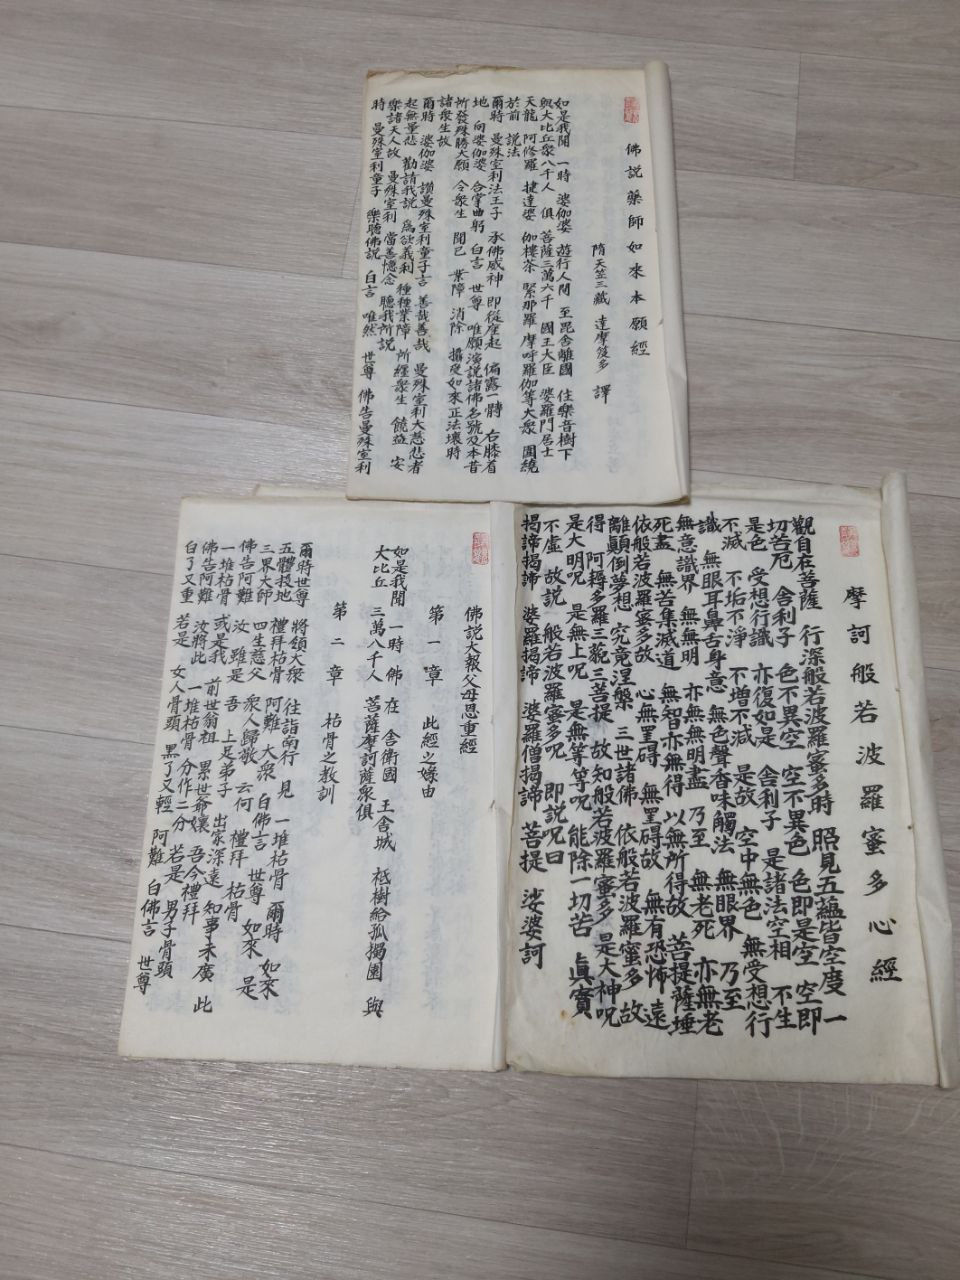 佛說藥師如來本願經
隋天竺三藏 達摩笈多 譯
如是我聞 一時 婆伽婆 遊行人間 至毘舍離國 住樂音樹下
與大比丘衆八千人 俱 菩薩三萬六千 國王大臣 婆羅門居士
天龍 阿修羅 揵達婆 伽樓茶 緊那羅 摩呼羅伽等大衆 圍繞
於前 說法
爾時 曼殊室利法王子 承佛威神 卽從座起 偏露一髆 右膝着
地 向婆伽婆 合掌曲躬 白言 世尊 唯願演說諸佛名號及本昔
所發殊勝大願 令衆生 聞已 業障 消除 攝受如來正法壞時
諸衆生故
爾時 婆伽婆 讚曼殊室利童子言 善哉善哉 曼殊室利大慈悲者
起無量悲 勸請我說 爲欲義利 種種業障 所纏衆生 饒益 安
樂諸天人故 曼殊室利 當善憶念 聽我所說
時 曼殊室利童子 樂聽佛說 白言 唯然 世尊 佛告曼殊室利
摩訶般若波羅蜜多心經
觀自在菩薩 行深般若波羅蜜多時 照見五蘊皆空度一
切苦厄 舍利子 色不異空 空不異色 色卽是空 空卽
是色 受想行識 亦復如是 舍利子 是諸法空相 不生
不滅 不垢不淨 不增不減 是故 空中無色 無受想行
識 無眼耳鼻舌身意 無色聲香味觸法 無眼界 乃至
無意識界 無無明 亦無無明盡 乃至 無老死 亦無老
死盡 無苦集滅道 無智亦無得 以無所得故 菩提薩埵
依般若波羅蜜多故 心無罣碍 無罣碍故 無有恐怖 遠
離顚倒夢想 究竟涅槃 三世諸佛 依般若波羅蜜多 故
得 阿耨多羅三藐三菩提 故知般若波羅蜜多 是大神呪
是大明呪 是無上呪 是無等等呪 能除一切苦 眞實
不虛 故說 般若波羅蜜多呪 卽說呪曰
揭諦揭諦 婆羅揭諦 婆羅僧揭諦 菩提 娑婆訶
佛說大報父母恩重經
第一章 此經之緣由
如是我聞 一時 佛 在 舍衛國 王舍城 祗樹給孤獨園 與
大比丘 三萬八千人 菩薩摩訶薩衆俱
第二章 枯骨之敎訓
爾時世尊 將領大衆 往詣南行 見 一堆枯骨 爾時 如來
五體投地 禮拜枯骨 阿難 大衆 白佛言 世尊 如來 是
三界大師 四生慈父 衆人歸敬 云何 禮拜 枯骨
佛告阿難 汝 雖是 吾 上足弟子 出家深遠 知事未廣 此
一堆枯骨 或是我 前世翁祖 累世爺孃 吾今禮拜
佛告阿難 汝將此 一堆枯骨 分作二分 若是 男子骨頭
白了又重 若是 女人骨頭 黑了又輕 阿難 白佛言 世尊